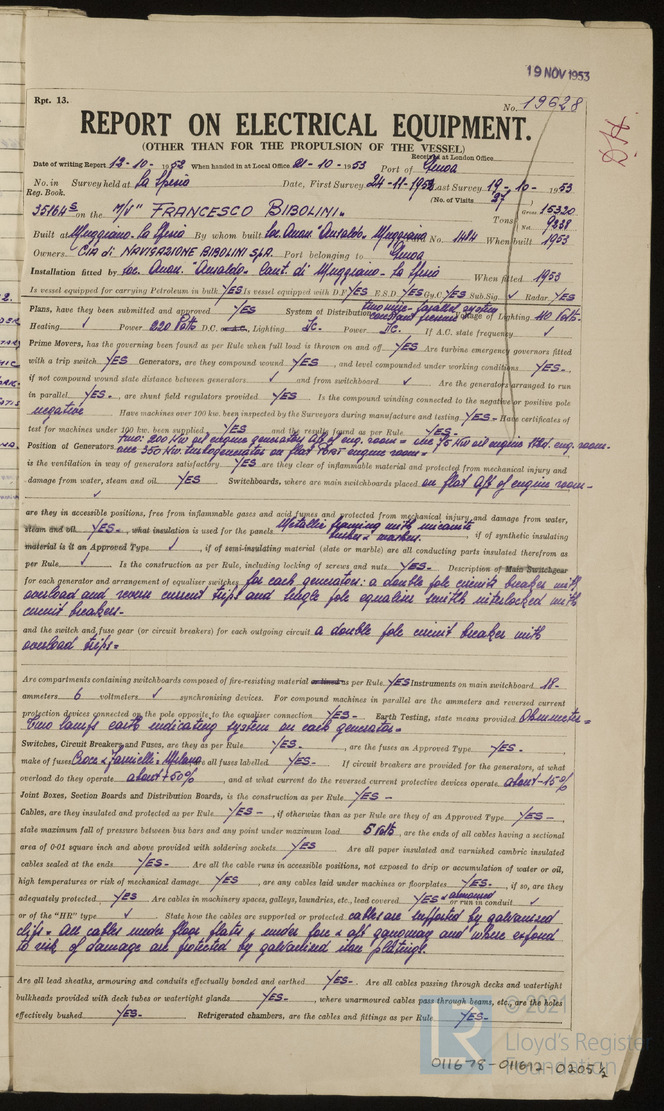 19 NOV 1953
Rpt. 13.
No. 19628
REPORT ON ELECTRICAL EQUIPMENT.
(OTHER THAN FOR THE PROPULSION OF THE VESSEL)
D.H.
Received at London Office
Date of writing Report 12-10-1953 When handed in at Local Office 21-10-1953 Port of Genoa
No. in Survey held at La Spezia Date, First Survey 24-11-1952 Last Survey 19-10-1953
Reg. Book. (No. of Visits 27)
35164S on the M/V "FRANCESCO BIBOLINI" Tons Gross 15330 Net 9228
Built at Muggiano - La Spezia By whom built Soc. Anon. "Ansaldo" Muggiano No. 1484 When built 1953
Owners CIA di NAVIGAZIONE BIBOLINI SpA. Port belonging to Genoa
Installation fitted by Soc. Anon. "Ansaldo" Cant. di Muggiano - La Spezia When fitted 1953
Is vessel equipped for carrying Petroleum in bulk YES Is vessel equipped with D.F. YES E.S.D. YES Gy.C. YES Sub.Sig. ✓ Radar YES
Plans, have they been submitted and approved YES System of Distribution two wire parallel system constant pressure Voltage of Lighting 110 Volts
Heating ✓ Power 220 Volts D.C. or A.C., Lighting DC. Power DC. If A.C. state frequency ✓
Prime Movers, has the governing been found as per Rule when full load is thrown on and off YES Are turbine emergency governors fitted
with a trip switch YES Generators, are they compound wound YES, and level compounded under working conditions YES-,
if not compound wound state distance between generators ✓ and from switchboard ✓ Are the generators arranged to run
in parallel YES-, are shunt field regulators provided YES Is the compound winding connected to the negative or positive pole
negative Have machines over 100 kw. been inspected by the Surveyors during manufacture and testing YES- Have certificates of
test for machines under 100 kw. been supplied YES and the results found as per Rule YES-
Position of Generators two: 200 Kw oil engine generators aft of eng. room = one 75 Kw oil engine Stbd. eng. room-
one 350 Kw turbogenerator on flat PORT engine room=
is the ventilation in way of generators satisfactory YES are they clear of inflammable material and protected from mechanical injury and
damage from water, steam and oil YES Switchboards, where are main switchboards placed on flat aft of engine room-
✓
are they in accessible positions, free from inflammable gases and acid fumes and protected from mechanical injury and damage from water,
steam and oil YES-, what insulation is used for the panels Metallic framing with micanite tubes & washers, if of synthetic insulating
material is it an Approved Type ✓, if of semi-insulating material (slate or marble) are all conducting parts insulated therefrom as
per Rule ✓ Is the construction as per Rule, including locking of screws and nuts YES- Description of Main Switchgear
for each generator and arrangement of equaliser switches for each generator: a double pole circuit breaker with
overload and reverse current trips and single pole equaliser switch interlocked with
circuit breakers.
and the switch and fuse gear (or circuit breakers) for each outgoing circuit a double pole circuit breaker with
overload trips=
Are compartments containing switchboards composed of fire-resisting material or lined as per Rule YES Instruments on main switchboard 18-
ammeters 6 voltmeters ✓ synchronising devices. For compound machines in parallel are the ammeters and reversed current
protection devices connected on the pole opposite to the equaliser connection YES- Earth Testing, state means provided Ohmmeter=
Two lamps earth indicating system on each generator=
Switches, Circuit Breakers and Fuses, are they as per Rule YES-, are the fuses an Approved Type YES-,
make of fuses, are all fuses labelled YES- If circuit breakers are provided for the generators, at what
overload do they operate about +50%, and at what current do the reversed current protective devices operate about -15%
Joint Boxes, Section Boards and Distribution Boards, is the construction as per Rule YES-
Cables, are they insulated and protected as per Rule YES-, if otherwise than as per Rule are they of an Approved Type YES-,
state maximum fall of pressure between bus bars and any point under maximum load 5 Volts, are the ends of all cables having a sectional
area of 0·01 square inch and above provided with soldering sockets YES Are all paper insulated and varnished cambric insulated
cables sealed at the ends YES- Are all the cable runs in accessible positions, not exposed to drip or accumulation of water or oil,
high temperatures or risk of mechanical damage YES, are any cables laid under machines or floorplates YES-, if so, are they
adequately protected YES Are cables in machinery spaces, galleys, laundries, etc., lead covered YES & armoured or run in conduit ✓
or of the "HR" type ✓ State how the cables are supported or protected cables are supported by galvanised
clips= all cables under floor flats & under fore & aft gangway and where exposed
to risk of damage are protected by galvanised iron platings.
Are all lead sheaths, armouring and conduits effectually bonded and earthed YES-. Are all cables passing through decks and watertight
bulkheads provided with deck tubes or watertight glands YES-, where unarmoured cables pass through beams, etc., are the holes
effectively bushed YES- Refrigerated chambers, are the cables and fittings as per Rule YES-
© 2021
LR
Lloyd's Register
Foundation
011678-011692-0205½